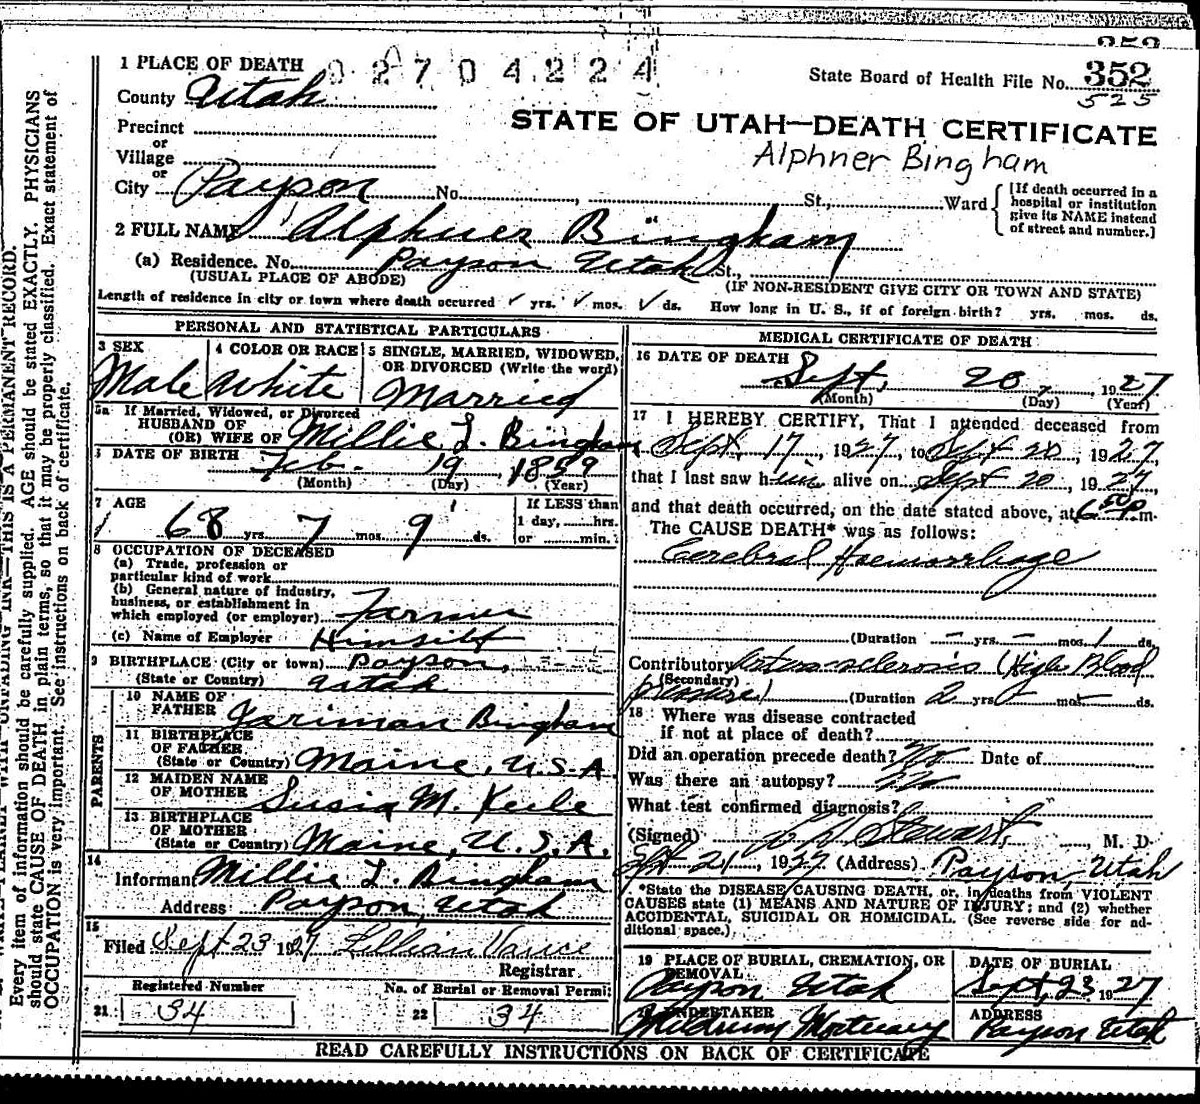 352
1 PLACE OF DEATH
02704224
State Board of Health File No. 352
525
County Utah
STATE OF UTAH—DEATH CERTIFICATE
Precinct
or
Village
Alphner Bingham
or
City Payson No. St., Ward
[If death occurred in a hospital or institution give its NAME instead of street and number.]
2 FULL NAME Alphner Bingham
(a) Residence. No. Payson Utah St.,
(USUAL PLACE OF ABODE) (IF NON-RESIDENT GIVE CITY OR TOWN AND STATE)
Length of residence in city or town where death occurred ✓ yrs. ✓ mos. ✓ ds. How long in U. S., if of foreign birth? yrs. mos. ds.
PERSONAL AND STATISTICAL PARTICULARS
3 SEX
Male
4 COLOR OR RACE
White
5 SINGLE, MARRIED, WIDOWED, OR DIVORCED (Write the word)
Married
5a If Married, Widowed, or Divorced
HUSBAND OF
(OR) WIFE OF Millie L. Bingham
6 DATE OF BIRTH Feb. 19 1859
(Month) (Day) (Year)
7 AGE
68 yrs. 7 mos. 9 ds.
If LESS than
1 day, hrs.
or min.
8 OCCUPATION OF DECEASED
(a) Trade, profession or
particular kind of work
(b) General nature of industry,
business, or establishment in
which employed (or employer) Farmer
(c) Name of Employer Himself
9 BIRTHPLACE (City or town) Payson,
(State or Country) Utah
PARENTS
10 NAME OF
FATHER Jariman Bingham
11 BIRTHPLACE
OF FATHER
(State or Country) Maine, U.S.A.
12 MAIDEN NAME
OF MOTHER Susia M. Keele
13 BIRTHPLACE
OF MOTHER
(State or Country) Maine, U.S.A.
14
Informant Millie L. Bingham
Address Payson, Utah
15
Filed Sept 23 1927 Lillian Vance
Registrar
Registered Number
21 34
No. of Burial or Removal Permit
22 34
MEDICAL CERTIFICATE OF DEATH
16 DATE OF DEATH
Sept. 20, 1927
(Month) (Day) (Year)
17 I HEREBY CERTIFY, That I attended deceased from
Sept. 17, 1927, to Sept 20, 1927,
that I last saw him alive on Sept 20, 1927,
and that death occurred, on the date stated above, at 6 50 P.m.
The CAUSE DEATH* was as follows:
Cerebral Haemorrhage
(Duration – yrs. – mos. 1 ds.
Contributory Arteriosclerosis (High Blood
(Secondary)
pressure) (Duration 2 yrs. mos. ds.
18 Where was disease contracted
if not at place of death?
Did an operation precede death? No Date of
Was there an autopsy? No
What test confirmed diagnosis?
(Signed) Stewart, M. D.
Sept 21, 1927 (Address) Payson, Utah
*State the DISEASE CAUSING DEATH, or, in deaths from VIOLENT
CAUSES state (1) MEANS AND NATURE OF INJURY; and (2) whether
ACCIDENTAL, SUICIDAL OR HOMICIDAL. (See reverse side for ad-
ditional space.)
19 PLACE OF BURIAL, CREMATION, OR
REMOVAL
Payson Utah
DATE OF BURIAL
Sept, 23 1927
UNDERTAKER
Mortuary
ADDRESS
Payson Utah
READ CAREFULLY INSTRUCTIONS ON BACK OF CERTIFICATE
INK—THIS IS A PERMANENT RECORD.
Every item of information should be carefully supplied. AGE should be stated EXACTLY. PHYSICIANS
should state CAUSE OF DEATH in plain terms, so that it may be properly classified. Exact statement of
OCCUPATION is very important. See instructions on back of certificate.